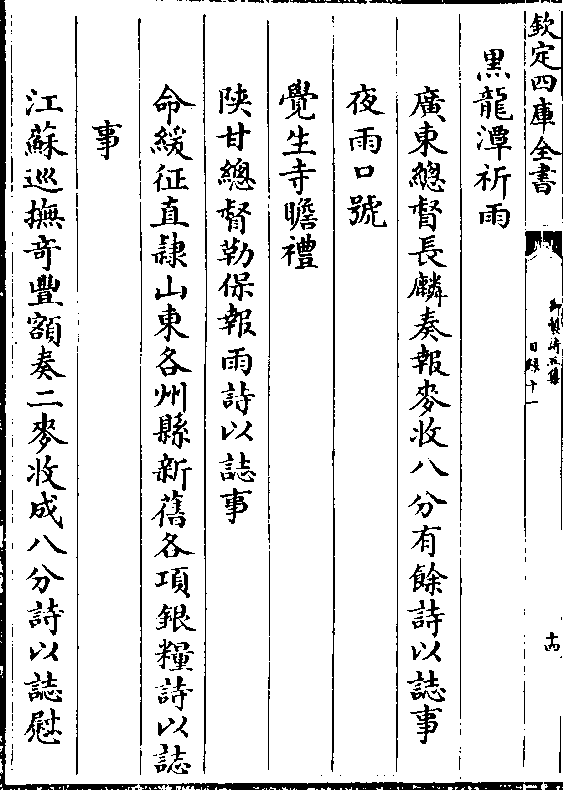 欽定四庫全書
御製詩五集
目録十一
十四
黒龍潭祈雨
廣東總督長麟奏報麥收八分有餘詩以誌事
夜雨口號
覺生寺瞻禮
陜甘總督勒保報雨詩以誌事
命緩征直隷山東各州縣新舊各項銀糧詩以誌
事
江蘇巡撫奇豐額奏二麥收成八分詩以誌慰